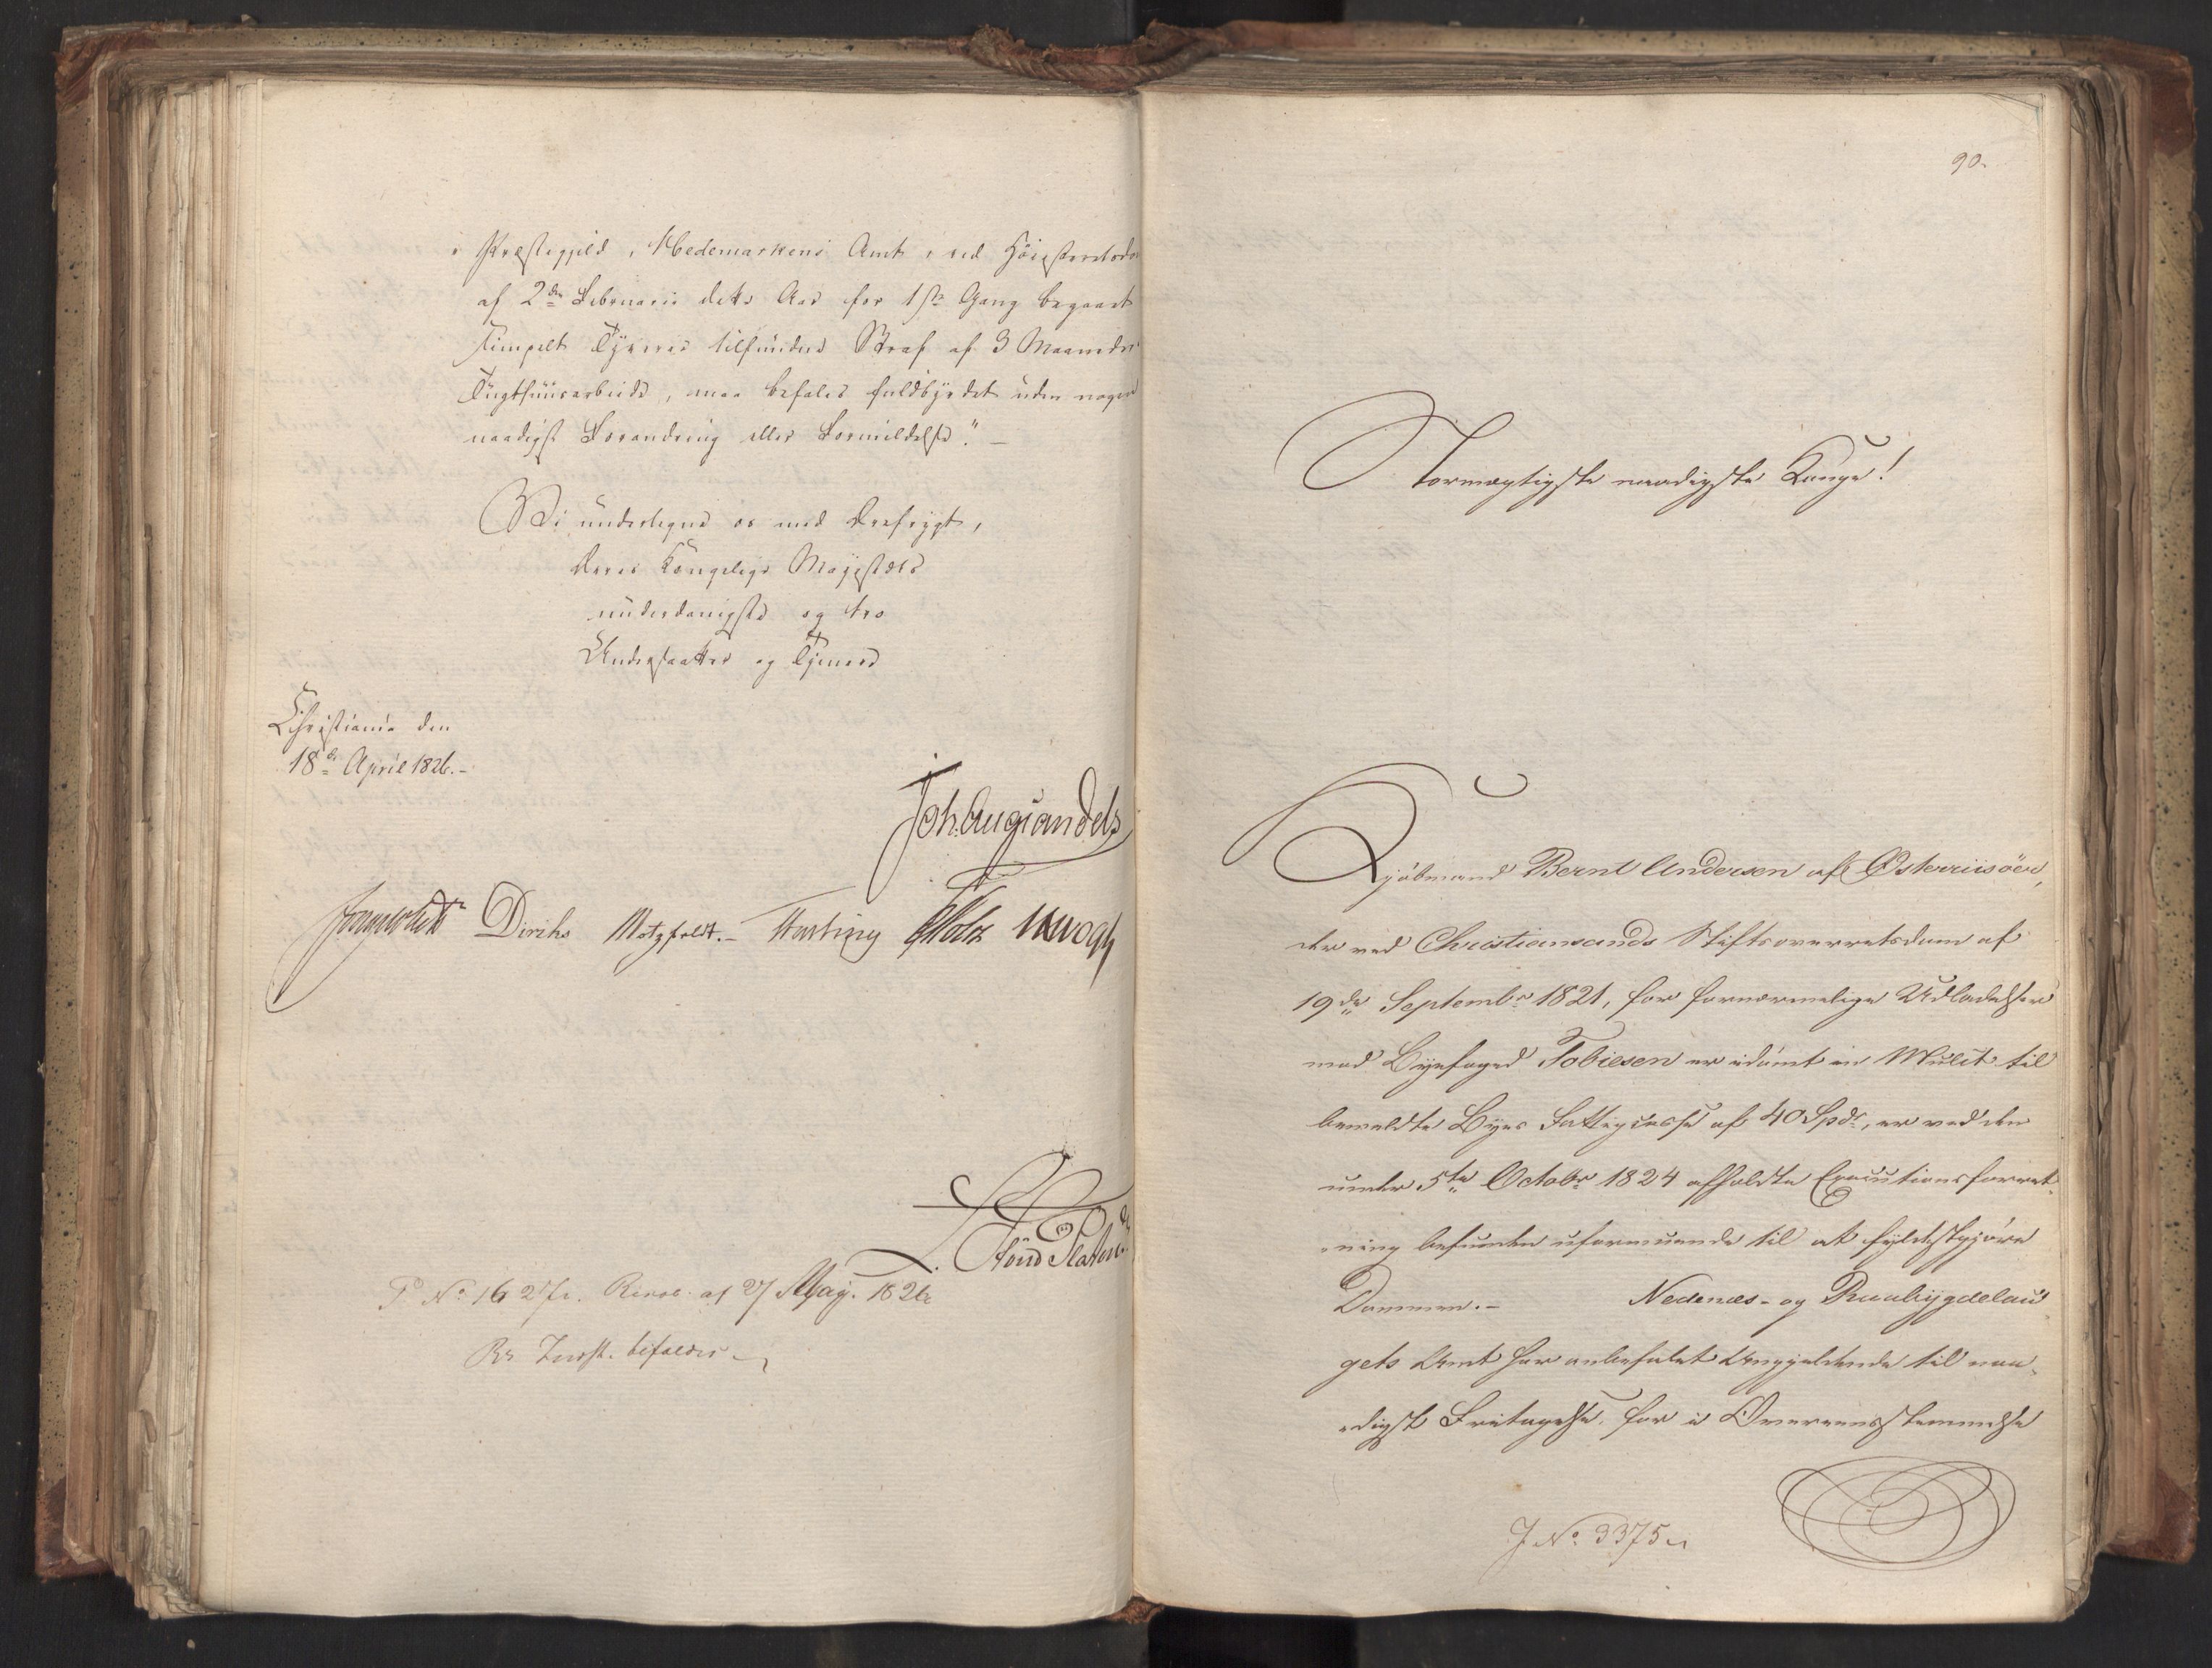 Præstegjeld, Hedemarkens Amt, ved Høiesteretsdom
af 2den Februarii dette Aar for 1ste Gang begaaet
simpelt Tyverie tilfundne Straf af 3 Maaneders
Tugthuusarbeide, maa befales fuldbyrdet uden nogen
naadigst Forandring eller Formildelse." —
Vi undertegne os med Ærefrygt,
Deres Kongelige Majestæts
underdanigste og tro
Undersaatter og Tjenere
Christiania den
18de April 1826.-
Joh. Aug: Sandels
Diriks Motzfeldt.- Hertzberg Holst Krogh
Platen.
P. No 162 Resol: af 27 May. 1826
Rs Indst. bifaldes
90.
Stormægtigste naadigste Konge!
Kjöbmand Bernt Andersen af Østerriisöer,
der ved Christiansands Stiftsoverretsdom af
19de Septembr 1821, for fornærmelige Udladelser
mod Byefoged Tobiesen er idömt en Mulct til
bemeldte Byes Fattigcasse af 40 Spdr, er ved den
under 5te Octobr 1824 afholdte Executionsforret-
-ning befunden uformuende til at fyldestgjöre
Dommen.- Nedenæs- og Raabygdelau-
gets Amt har anbefalet Angjeldende til naa-
-digst Fritagelse, for i Overeensstemmelse
J. No. 3375